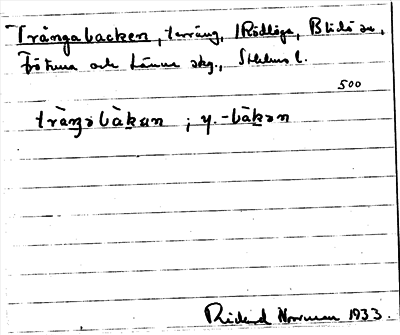 Trångabacken, terräng, 1 Rödlöga, Blidö sn,
Frötuna och Länna skg., Sthlms l.
500
tràŋabàkan ; y. -bàkən
Rickard Norrman 1933.